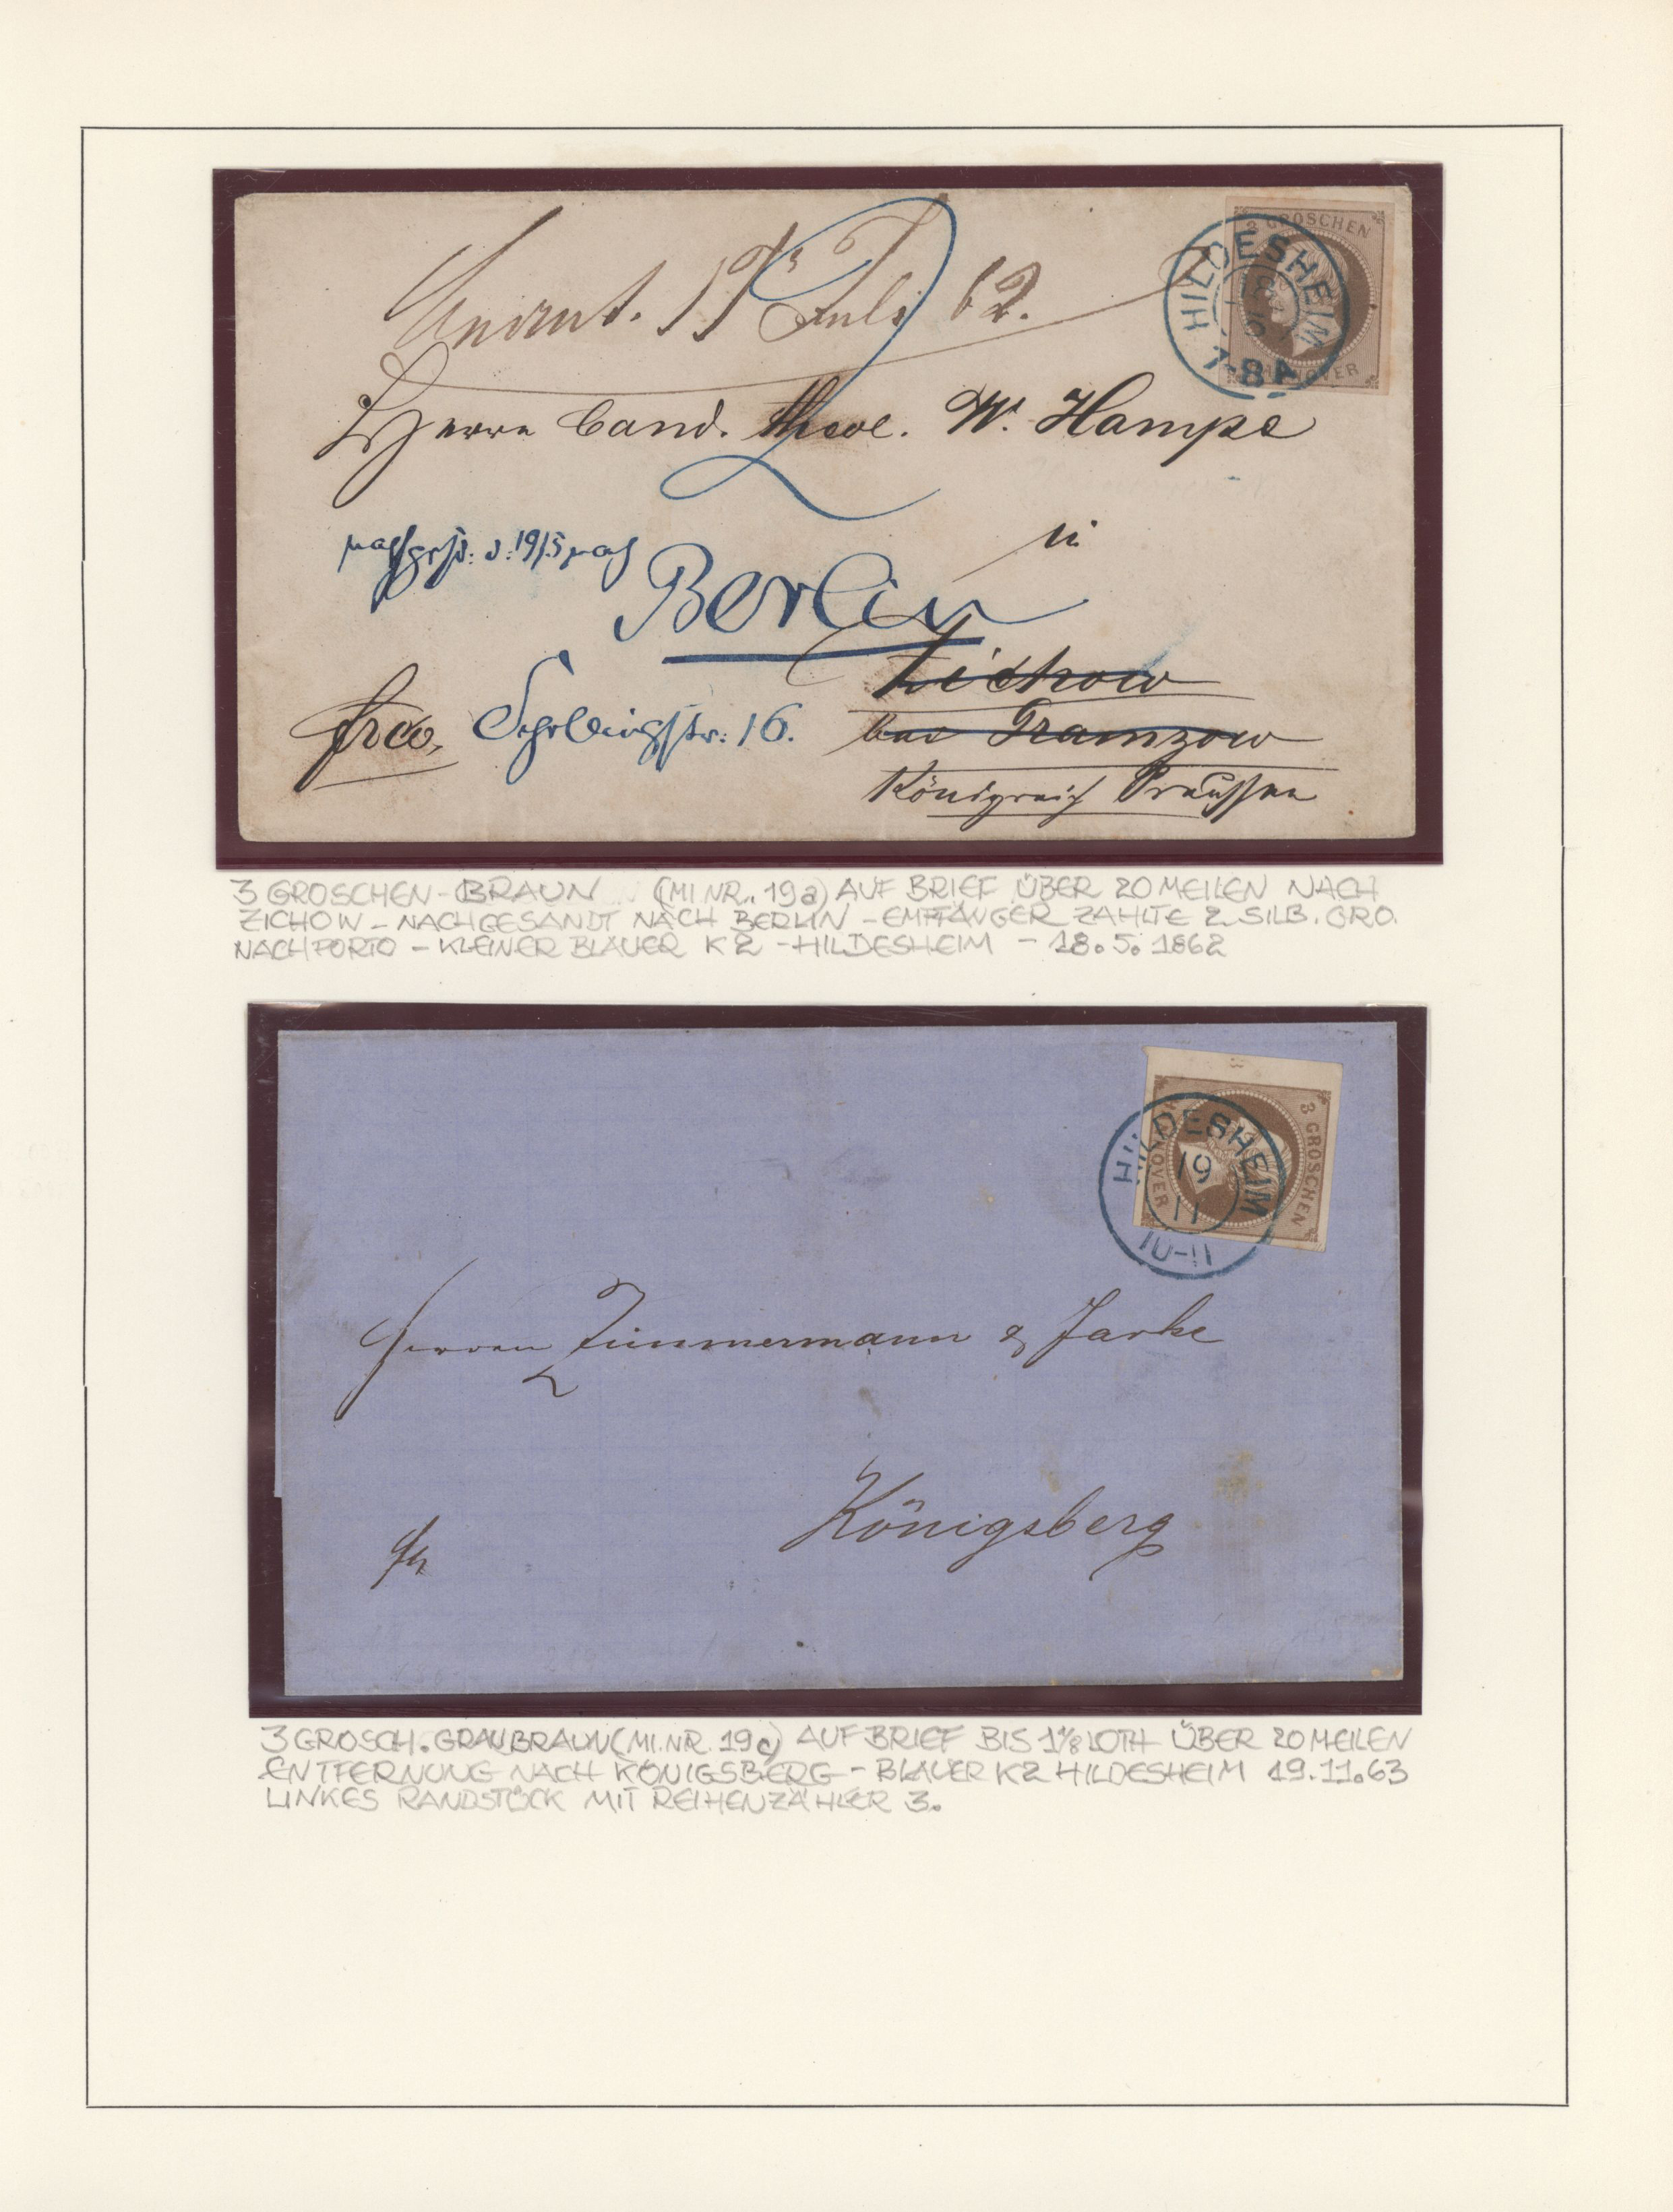 Juli 62.
3 GROSCHEN
HANNOVER
HILDESHEIM
18
5
7-8 A
Herrn Cand. theol. W. Hampe
in
nachges: d: 19/5 nach
Berlin
Zichow
frco, Schellingstr: 16.
bei Gramzow
Königreich Preussen
3 GROSCHEN-BRAUN (MI NR. 19a) AUF BRIEF ÜBER 20 MEILEN NACH
ZICHOW – NACHGESANDT NACH BERLIN – EMPFÄNGER ZAHLTE 2 SILB. GRO.
NACHPORTO – KLEINER BLAUER K2 – HILDESHEIM – 18.5.1862
3
3 GROSCHEN
HANNOVER
HILDESHEIM
19
11
10-11
Herren Zimmermann & Jarke
Königsberg
fr
3 GROSCH. GRAUBRAUN (MI. NR. 19c) AUF BRIEF BIS 1 1/8 LOTH ÜBER 20 MEILEN
ENTFERNUNG NACH KÖNIGSBERG – BLAUER K2 HILDESHEIM 19.11.63
LINKES RANDSTÜCK MIT REIHENZÄHLER 3.